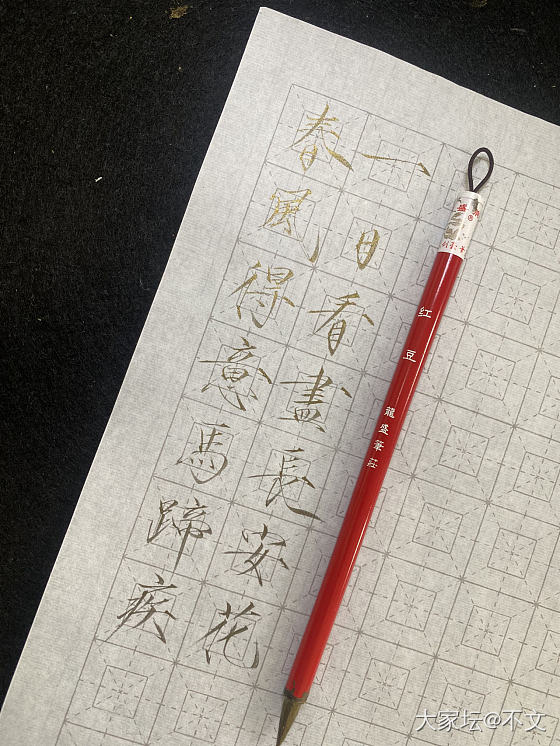 春風得意馬蹄疾
一日看盡長安花
红豆
龍盛筆莊
大家坛@不文